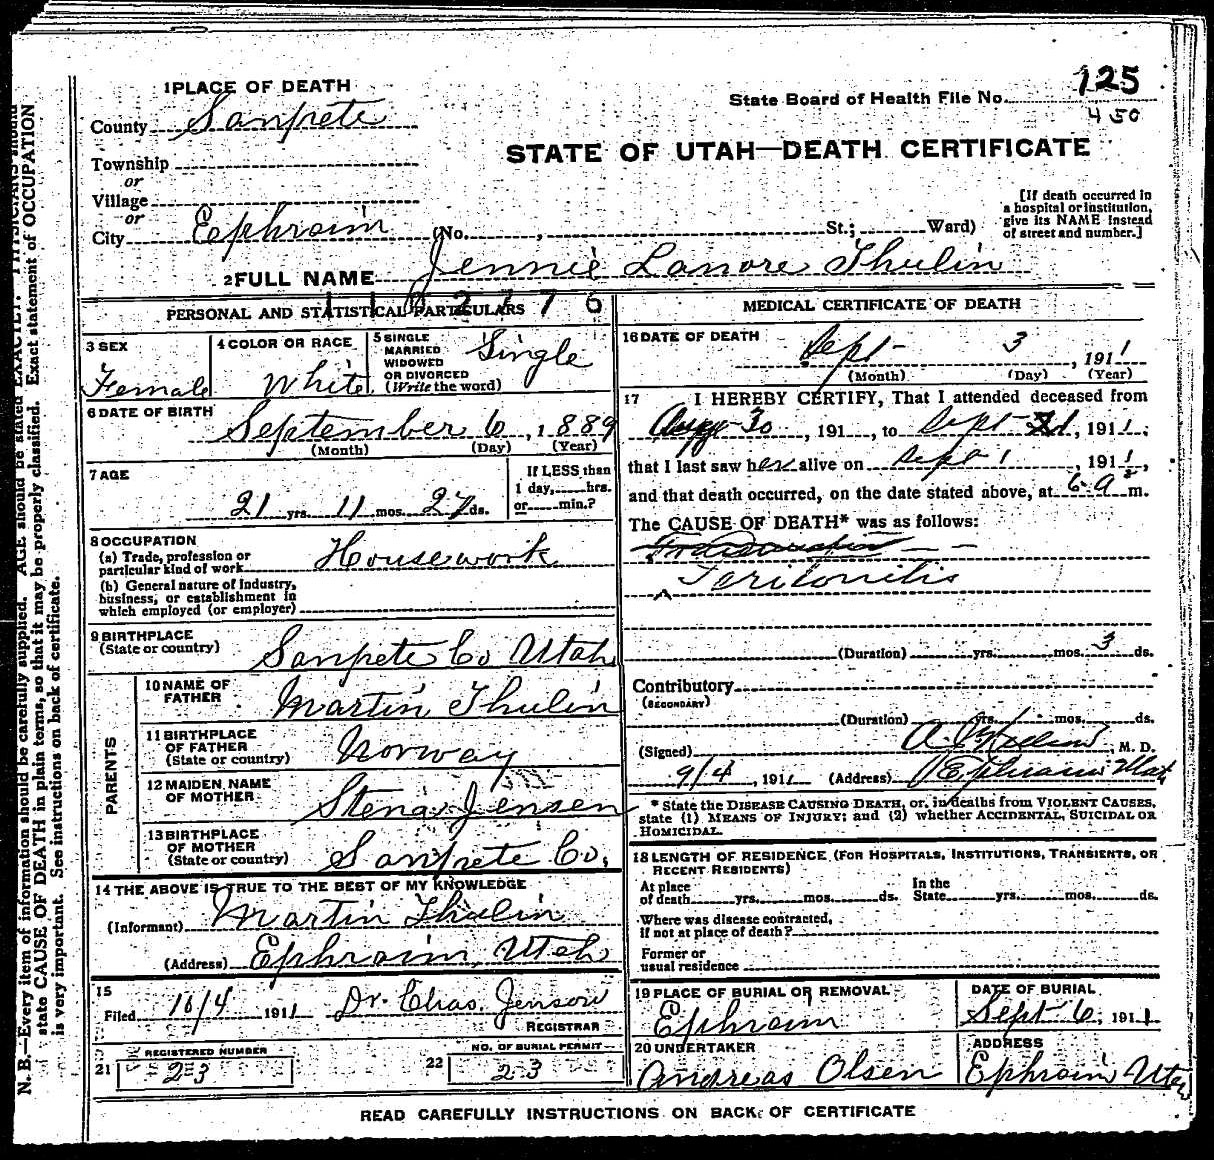 125
State Board of Health File No.
450
1 PLACE OF DEATH
County Sanpete
STATE OF UTAH—DEATH CERTIFICATE
Township
or
Village
or
City Ephraim (No. , St.; Ward)
[If death occurred in
a hospital or institution,
give its NAME instead
of street and number.]
2 FULL NAME Jennie Lanore Thulin
PERSONAL AND STATISTICAL PARTICULARS
3 SEX
Female
4 COLOR OR RACE
White
5 SINGLE
MARRIED
WIDOWED
OR DIVORCED
(Write the word)
Single
6 DATE OF BIRTH
September 6, 1889
(Month) (Day) (Year)
7 AGE
21 yrs. 11 mos. 27 ds.
If LESS than
1 day, hrs.
or min.?
8 OCCUPATION
(a) Trade, profession or
particular kind of work Housework
(b) General nature of industry,
business, or establishment in
which employed (or employer)
9 BIRTHPLACE
(State or country)
Sanpete Co Utah
PARENTS
10 NAME OF
FATHER
Martin Thulin
11 BIRTHPLACE
OF FATHER
(State or country)
Norway
12 MAIDEN NAME
OF MOTHER
Stena Jensen
13 BIRTHPLACE
OF MOTHER
(State or country)
Sanpete Co,
14 THE ABOVE IS TRUE TO THE BEST OF MY KNOWLEDGE
(Informant) Martin Thulin
(Address) Ephraim, Utah
15
Filed 10/4 1911 Dr. Chas. Jenson
REGISTRAR
REGISTERED NUMBER
21 23
NO. OF BURIAL PERMIT
22 23
MEDICAL CERTIFICATE OF DEATH
16 DATE OF DEATH
Sept 3, 1911
(Month) (Day) (Year)
17 I HEREBY CERTIFY, That I attended deceased from
Aug 30, 191 , to Sept , 1911,
that I last saw her alive on Sept 1, 1911,
and that death occurred, on the date stated above, at 6 a m.
The CAUSE OF DEATH* was as follows:
Peritonitis
(Duration) yrs. mos. 3 ds.
Contributory
(SECONDARY)
(Duration) yrs. mos. ds.
(Signed) , M. D.
9/4, 1911 (Address) Ephraim Utah
* State the DISEASE CAUSING DEATH, or, in deaths from VIOLENT CAUSES,
state (1) MEANS OF INJURY; and (2) whether ACCIDENTAL, SUICIDAL OR
HOMICIDAL.
18 LENGTH OF RESIDENCE (FOR HOSPITALS, INSTITUTIONS, TRANSIENTS, OR
RECENT RESIDENTS)
At place
of death yrs. mos. ds.
In the
State yrs. mos. ds.
Where was disease contracted,
if not at place of death?
Former or
usual residence
19 PLACE OF BURIAL OR REMOVAL
Ephraim
DATE OF BURIAL
Sept 6, 1911
20 UNDERTAKER
Andreas Olsen
ADDRESS
Ephraim Utah
READ CAREFULLY INSTRUCTIONS ON BACK OF CERTIFICATE
N. B.—Every item of information should be carefully supplied. AGE should be stated EXACTLY. PHYSICIANS should
state CAUSE OF DEATH in plain terms, so that it may be properly classified. Exact statement of OCCUPATION
is very important. See instructions on back of certificate.